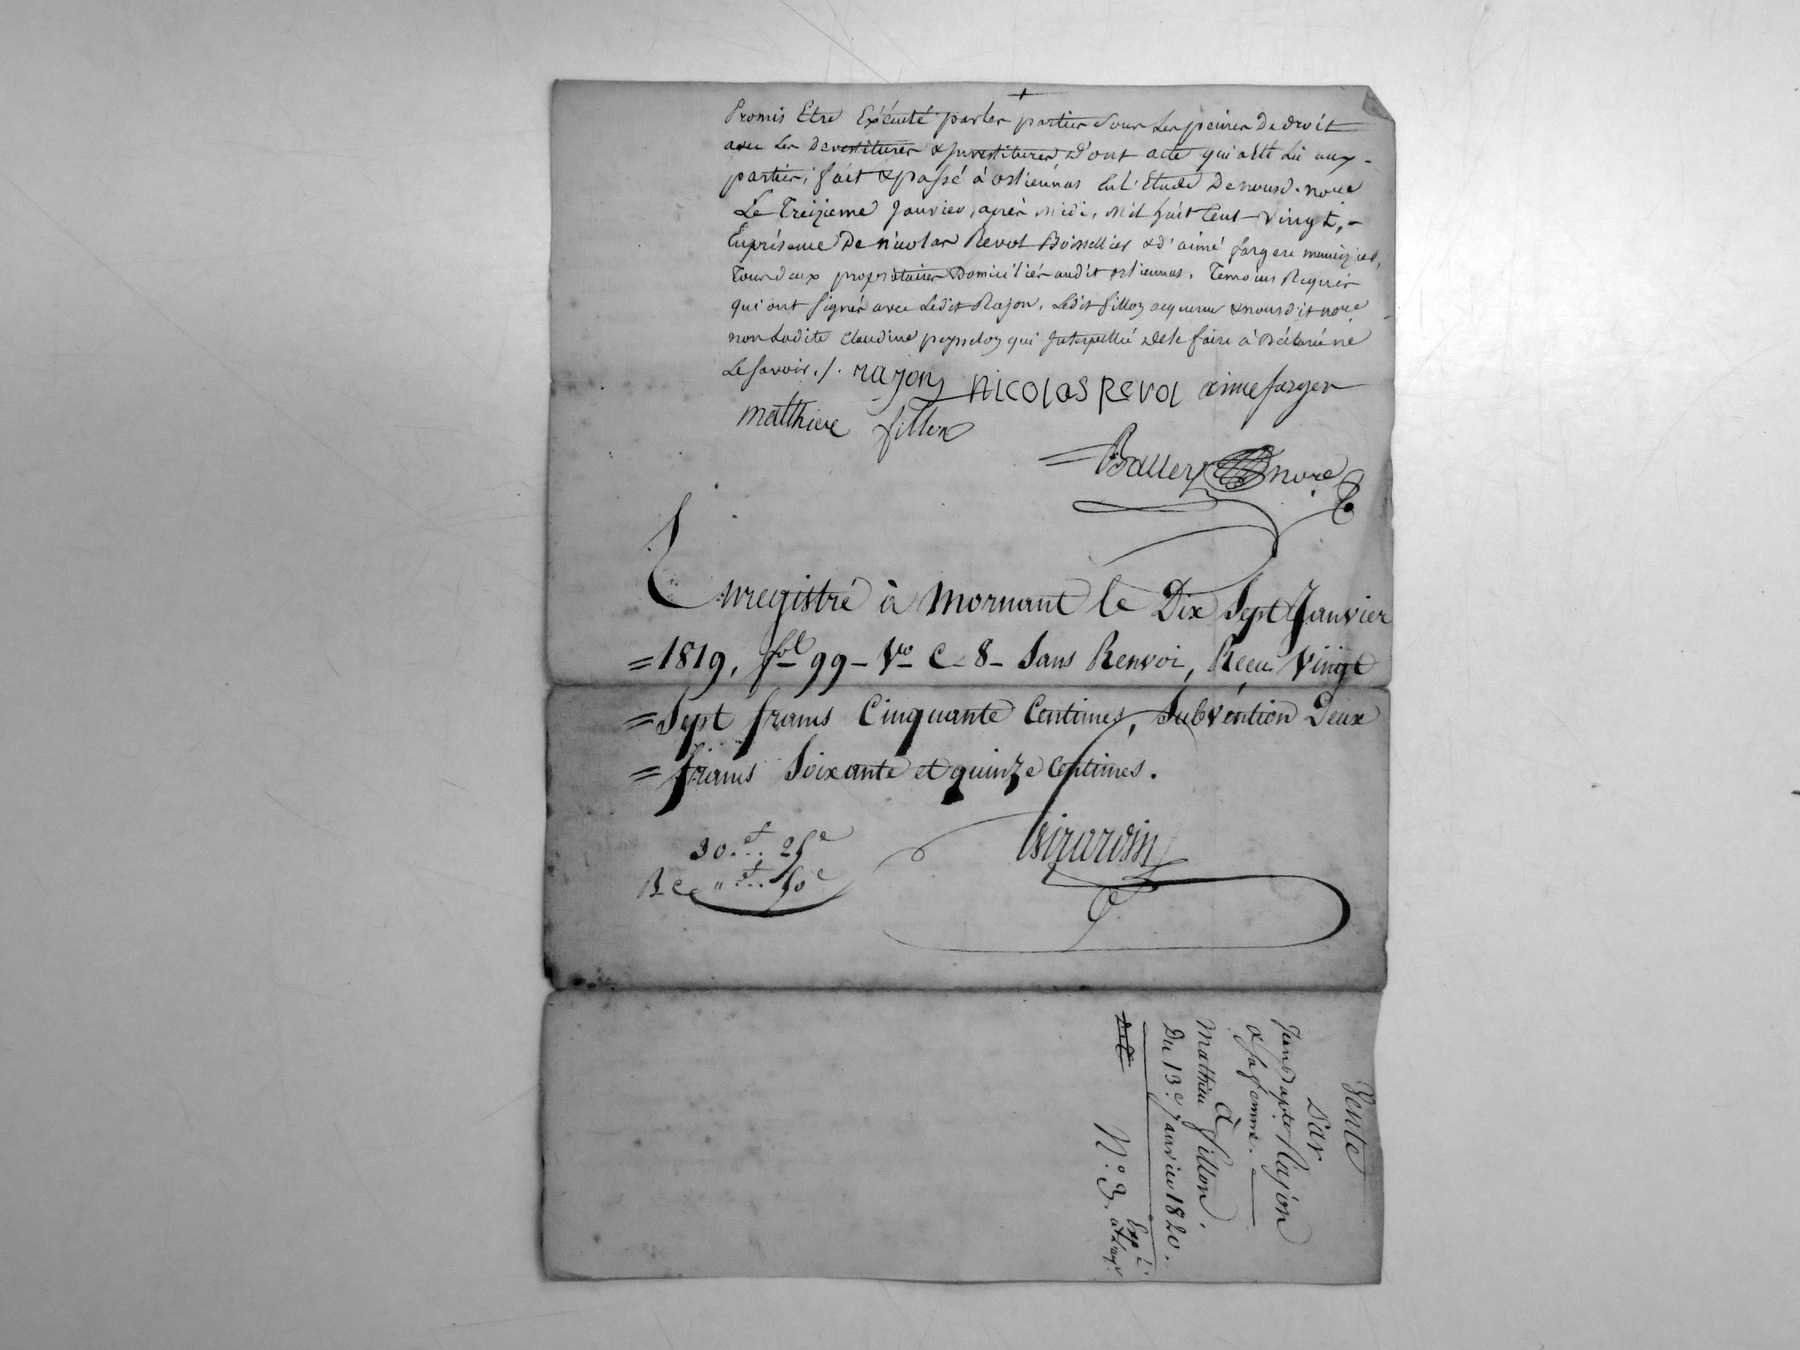 Promis Etre Exécuté par les parties Sous les peines De droit
avec les devestitures & Investitures D'ont acte qui a été Lu aux
parties, fait & passé à Orliennas En L'Etude De nousd. nore
Le Treizieme Janvier, après Midi, Mil huit Cent Vingt,
En présence De Nicolas Revol Boissellier & d'aimé farges
Tous deux propriétaires Domiciliés audit orliennas, Temoins Requis
qui ont signés avec Ledit Rajon, Ledit fillon acquereur & nousdit nore
non Ladite Claudine peysseloy qui Interpellée De le faire à Déclaré ne
Le savoir ./. rajon Nicolas Revol aime farges
matthieu fillon
Ballery nore
Enregistré à Mornant le Dix Sept Janvier
= 1819, fol 99 - Vo C - 8 - Sans Renvoi, Reçu Vingt
= Sept francs Cinquante Centimes, Subvention Deux
= francs Soixante et quinze Centimes.
30 f 25 c
R c " f 50 c
Girardin
Vente
Par
Jean Bapte Rajon
& sa femme.
à
Mathieu fillon.
Du 13e Janvier 1820.
Exp
No. 3.